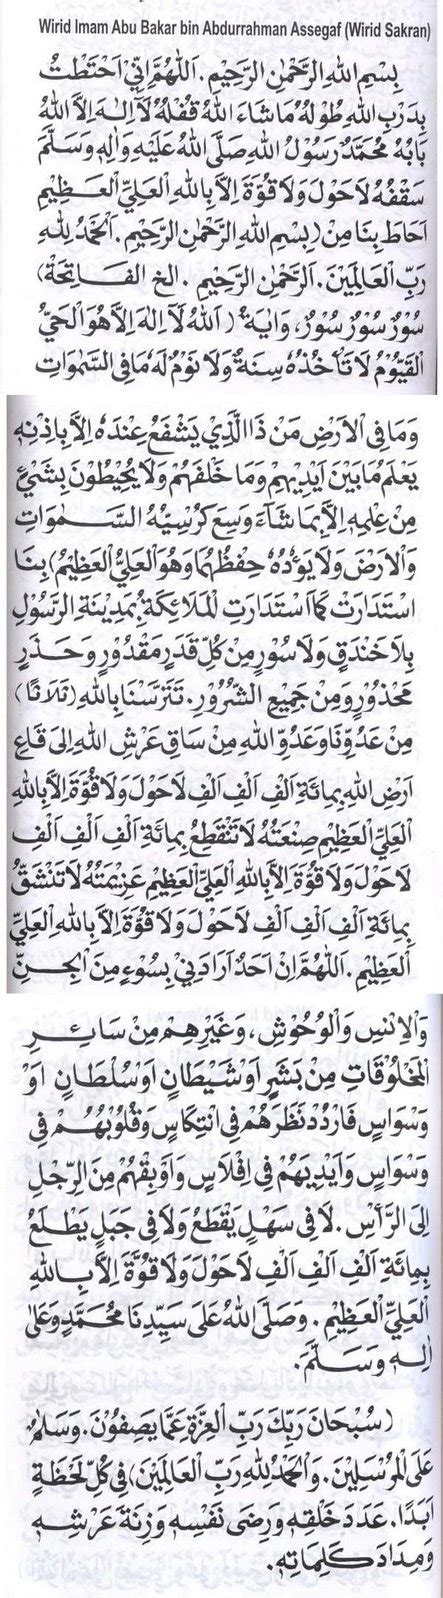 Wirid Imam Abu Bakar bin Abdurrahman Assegaf (Wirid Sakran)
بِسْمِ اللهِ الرَّحْمٰنِ الرَّحِيْمِ. اَللّٰهُمَّ اِنِّي احْتَطْتُ
بِدَرْبِ اللهِ طُوْلُهُ مَا شَاءَ اللهُ قُفْلُهُ لَآ اِلٰهَ اِلَّا اللهُ
بَابُهُ مُحَمَّدٌ رَسُوْلُ اللهِ صَلَّى اللهُ عَلَيْهِ وَاٰلِهِ وَسَلَّمَ
سَقْفُهُ لَاحَوْلَ وَلَا قُوَّةَ اِلَّا بِاللهِ الْعَلِيِّ الْعَظِيْمِ
اَحَاطَ بِنَا مِنْ (بِسْمِ اللهِ الرَّحْمٰنِ الرَّحِيْمِ. اَلْحَمْدُ لِلّٰهِ
رَبِّ الْعَالَمِيْنَ. اَلرَّحْمٰنِ الرَّحِيْمِ. الخ الفَاتِحَة)
سُوْرٌ سُوْرٌ سُوْرٌ، وَاٰيَةُ (اَللهُ لَآ اِلٰهَ اِلَّا هُوَ الْحَيُّ
الْقَيُّوْمُ لَا تَأْخُذُهُ سِنَةٌ وَلَا نَوْمٌ لَهُ مَا فِى السَّمٰوَاتِ
وَمَا فِى الْاَرْضِ مَنْ ذَا الَّذِيْ يَشْفَعُ عِنْدَهُ اِلَّا بِاِذْنِهِ
يَعْلَمُ مَا بَيْنَ اَيْدِيْهِمْ وَمَا خَلْفَهُمْ وَلَا يُحِيْطُوْنَ بِشَيْءٍ
مِنْ عِلْمِهِ اِلَّا بِمَا شَآءَ وَسِعَ كُرْسِيُّهُ السَّمٰوَاتِ
وَالْاَرْضَ وَلَا يَؤُدُهُ حِفْظُهُمَا وَهُوَ الْعَلِيُّ الْعَظِيْمُ) بِنَا
اسْتَدَارَتْ كَمَا اسْتَدَارَتِ الْمَلَائِكَةُ بِمَدِيْنَةِ الرَّسُوْلِ
بِلَا خَنْدَقٍ وَلَا سُوْرٍ مِنْ كُلِّ قَدَرٍ مَقْدُوْرٍ وَحَذَرٍ
مَحْذُوْرٍ وَمِنْ جَمِيْعِ الشُّرُوْرِ. تَتَرَّسْنَا بِاللهِ (ثَلَاثًا)
مِنْ عَدُوِّنَا وَعَدُوِّ اللهِ مِنْ سَاقِ عَرْشِ اللهِ اِلَى قَاعِ
اَرْضِ اللهِ بِمِائَةِ اَلْفِ اَلْفِ اَلْفِ لَاحَوْلَ وَلَا قُوَّةَ اِلَّا بِاللهِ
الْعَلِيِّ الْعَظِيْمِ صَنْعَتُهُ لَا تَنْقَطِعُ بِمِائَةِ اَلْفِ اَلْفِ اَلْفِ
لَاحَوْلَ وَلَا قُوَّةَ اِلَّا بِاللهِ الْعَلِيِّ الْعَظِيْمِ عَزِيْمَتُهُ لَا تَنْشَقُّ
بِمِائَةِ اَلْفِ اَلْفِ اَلْفِ لَاحَوْلَ وَلَا قُوَّةَ اِلَّا بِاللهِ الْعَلِيِّ
الْعَظِيْمِ. اَللّٰهُمَّ اِنْ اَحَدٌ اَرَادَنِيْ بِسُوْءٍ مِنَ الْجِنِّ
وَالْاِنْسِ وَالْوُحُوْشِ، وَغَيْرِهِمْ مِنْ سَائِرِ
الْمَخْلُوْقَاتِ مِنْ بَشَرٍ اَوْ شَيْطَانٍ اَوْ سُلْطَانٍ اَوْ
وَسْوَاسٍ فَارْدُدْ نَظَرَهُمْ فِى انْتِكَاسٍ وَقُلُوْبَهُمْ فِى
وَسْوَاسٍ وَاَيْدِيَهُمْ فِى اِفْلَاسٍ وَاَوْبِقْهُمْ مِنَ الرِّجْلِ
اِلَى الرَّأْسِ. لَا فِى سَهْلٍ يَقْطَعُ وَلَا فِى جَبَلٍ يَطْلَعُ
بِمِائَةِ اَلْفِ اَلْفِ اَلْفِ لَاحَوْلَ وَلَا قُوَّةَ اِلَّا بِاللهِ
الْعَلِيِّ الْعَظِيْمِ. وَصَلَّى اللهُ عَلَى سَيِّدِنَا مُحَمَّدٍ وَعَلَى
اٰلِهِ وَسَلَّمَ.
(سُبْحَانَ رَبِّكَ رَبِّ الْعِزَّةِ عَمَّا يَصِفُوْنَ. وَسَلَامٌ
عَلَى الْمُرْسَلِيْنَ. وَالْحَمْدُ لِلّٰهِ رَبِّ الْعَالَمِيْنَ) فِى كُلِّ لَحْظَةٍ
اَبَدًا. عَدَدَ خَلْقِهِ وَرِضَى نَفْسِهِ وَزِنَةَ عَرْشِهِ
وَمِدَادَ كَلِمَاتِهِ.